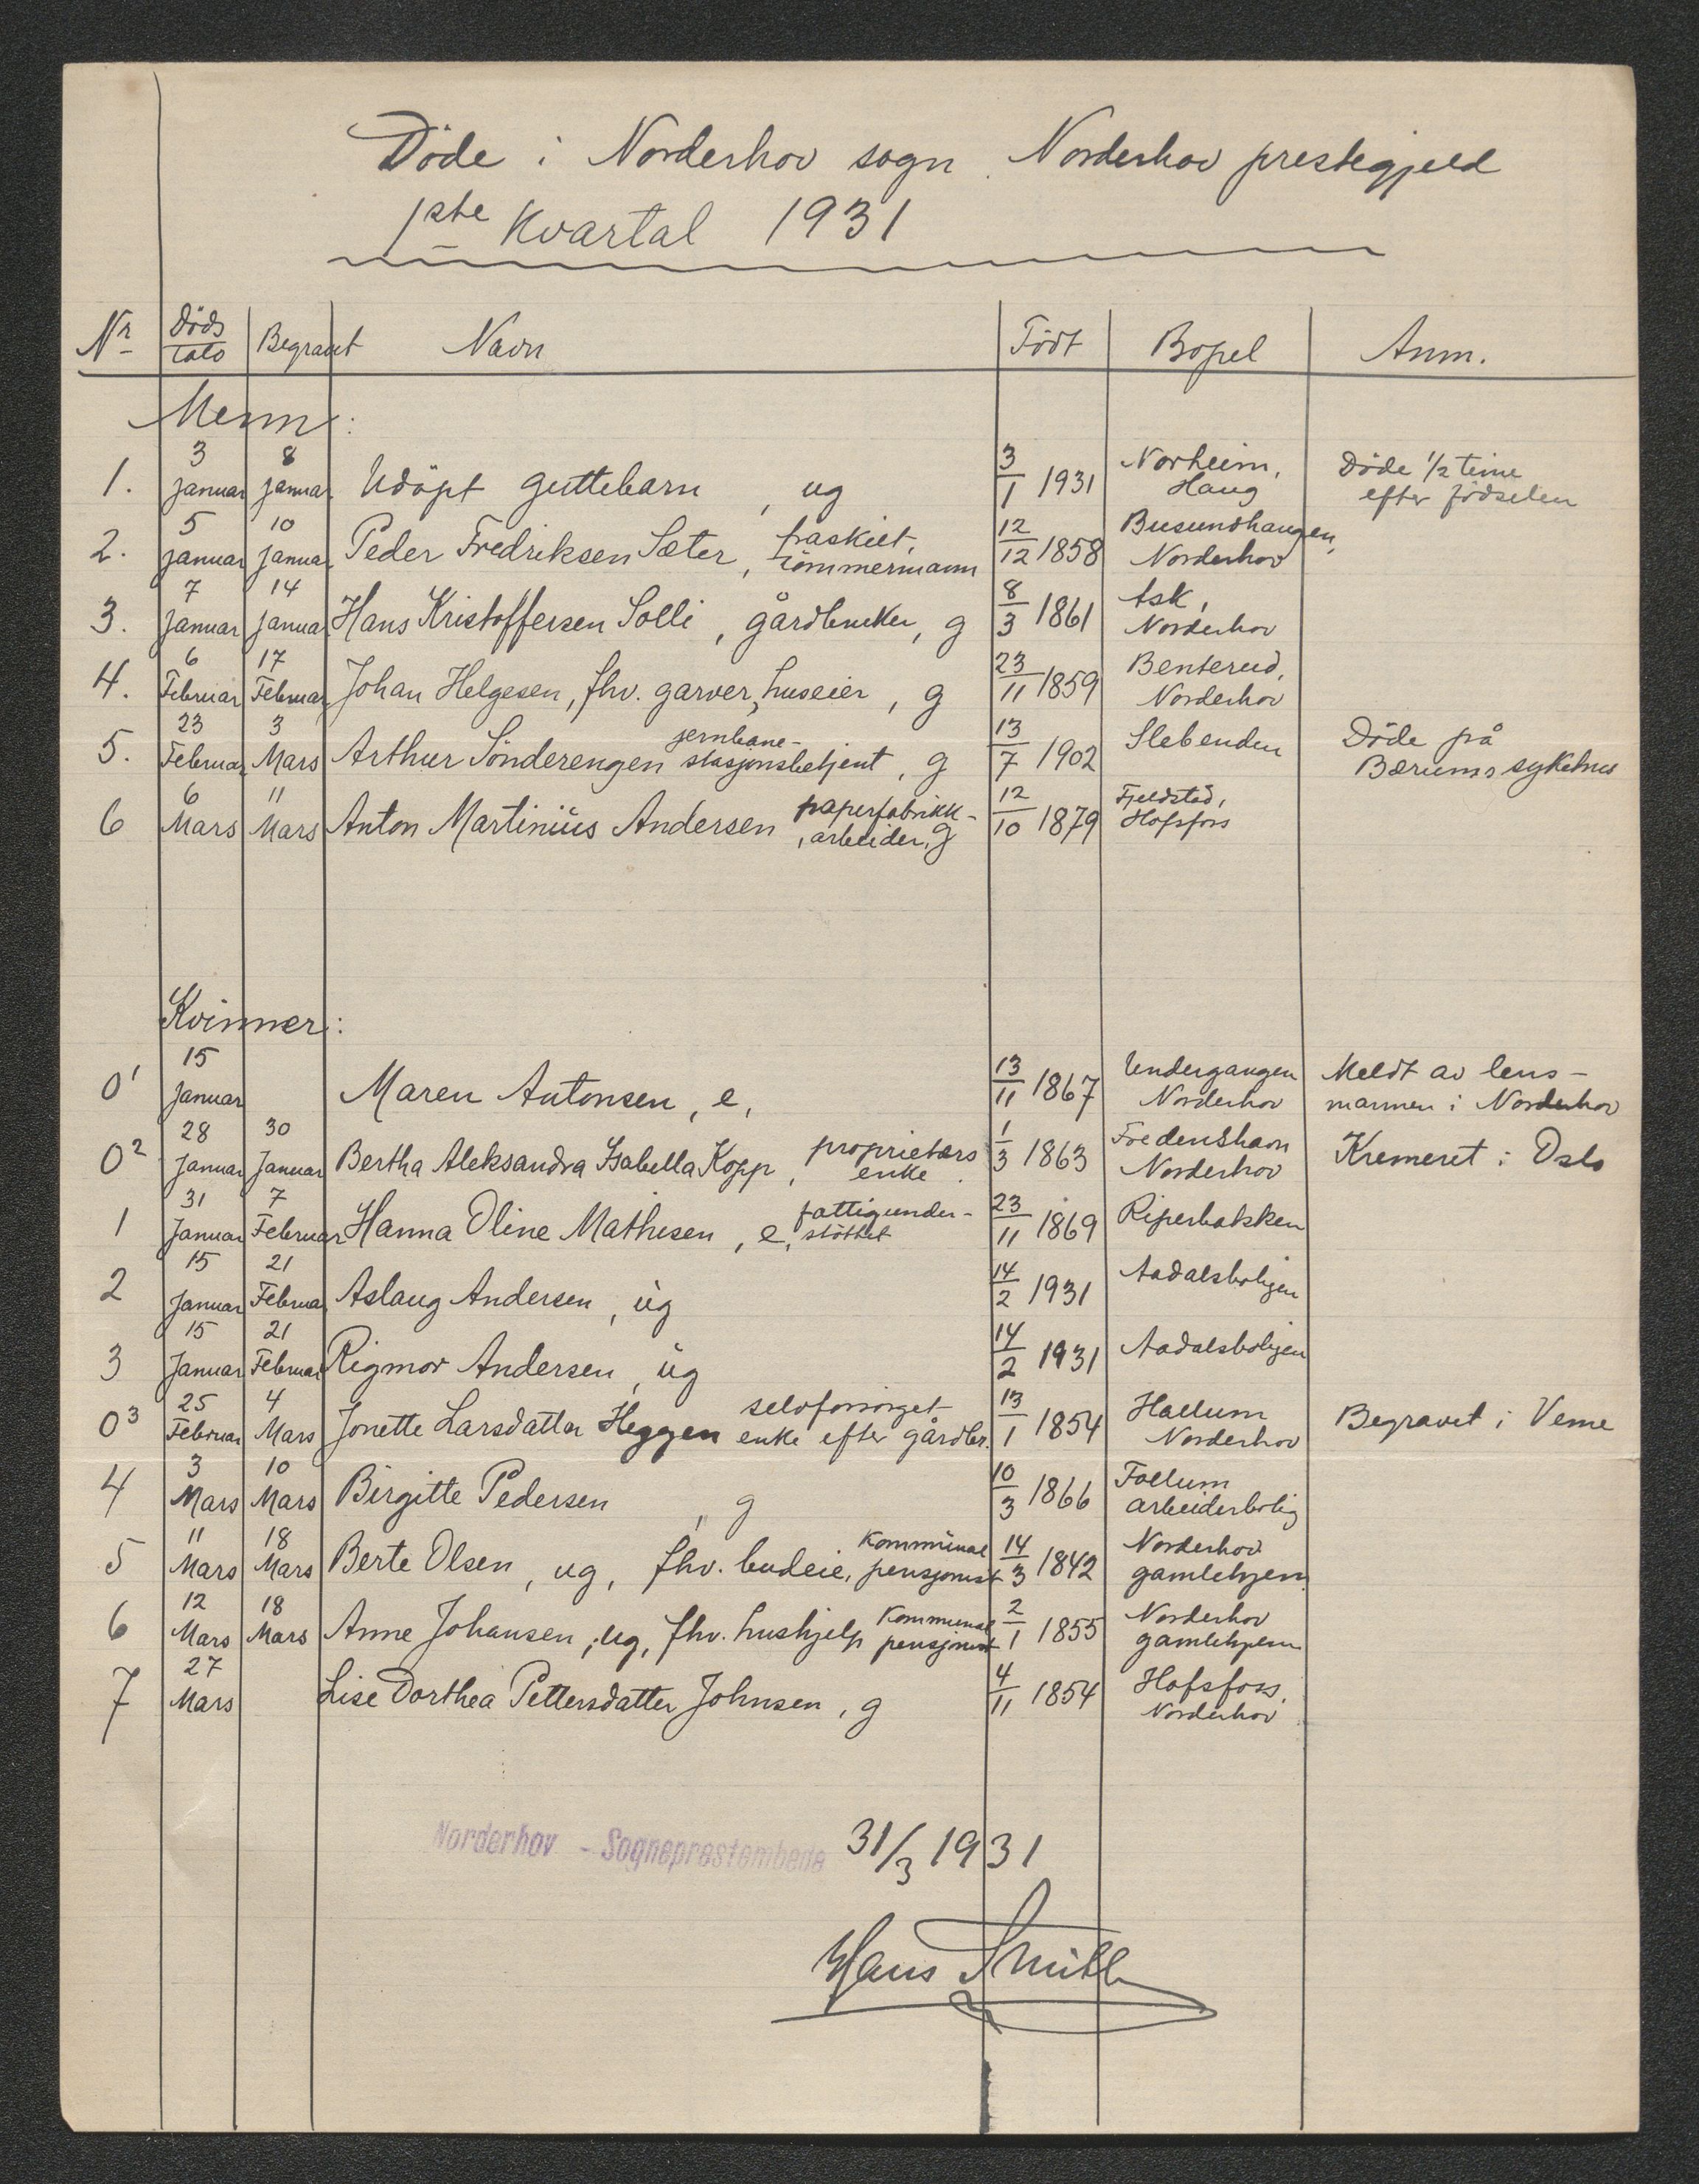 Døde i Norderhov sogn. Norderhov prestegjeld
1ste Kvartal 1931
Nr Døds dato Begravet Navn Født Bopel Anm.
Menn:
1. 3 januar 8 januar Udøpt guttebarn, ug 3/1 1931 Norheim, Haug Døde 1/2 time efter fødselen
2. 5 januar 10 januar Peder Fredriksen Sæter, fraskilt, tømmermann 12/12 1858 Busundhaugen, Norderhov
3. 7 januar 14 januar Hans Kristoffersen Solli, gårdbruker, g 8/3 1861 Ask, Norderhov
4. 6 Februar 17 Februar Johan Helgesen, fhv. garver, huseier, g 23/11 1859 Benterud, Norderhov
5. 23 Februar 3 Mars Arthur Sønderengen jernbane-stasjonsbetjent, g 13/7 1902 Slebenden Døde på Bærums sykehus
6 6 Mars 11 Mars Anton Martinius Andersen, papirfabrikk-arbeider, g 12/10 1879 Fjeldstad, Hofsfoss
Kvinner:
0¹ 15 Januar Maren Antonsen, e, 13/11 1867 Undergangen Norderhov Meldt av lens-mannen i Norderhov
0² 28 Januar 30 Januar Bertha Aleksandra Isabella Kopp, proprietærs enke. 1/3 1863 Fredenshavn Norderhov Kremeret i Oslo
1 31 Januar 7 Februar Hanna Oline Mathisen, e, fattigunder-støttet 23/11 1869 Riperbakken
2 15 Januar 21 Februar Aslaug Andersen, ug 14/2 1931 Aadalsboligen
3 15 Januar 21 Februar Rigmor Andersen, ug 14/2 1931 Aadalsboligen
0³ 25 Februar 4 Mars Jonette Larsdatter Heggen selvforsørget enke efter gårdbr. 13/1 1854 Hallum Norderhov Begravet i Veme
4 3 Mars 10 Mars Birgitte Pedersen, g 10/3 1866 Follum arbeiderbolig
5 11 Mars 18 Mars Berte Olsen, ug, fhv. budeie, kommunal pensjonist 14/3 1842 Norderhov gamlehjem
6 12 Mars 18 Mars Anne Johansen, ug, fhv. hushjelp kommunal pensjonist 2/1 1855 Norderhov gamlehjem
7 27 Mars Lise Dorthea Pettersdatter Johnsen, g 4/11 1854 Hofsfoss, Norderhov
Norderhov - Sogneprestembede 31/3 1931
Hans